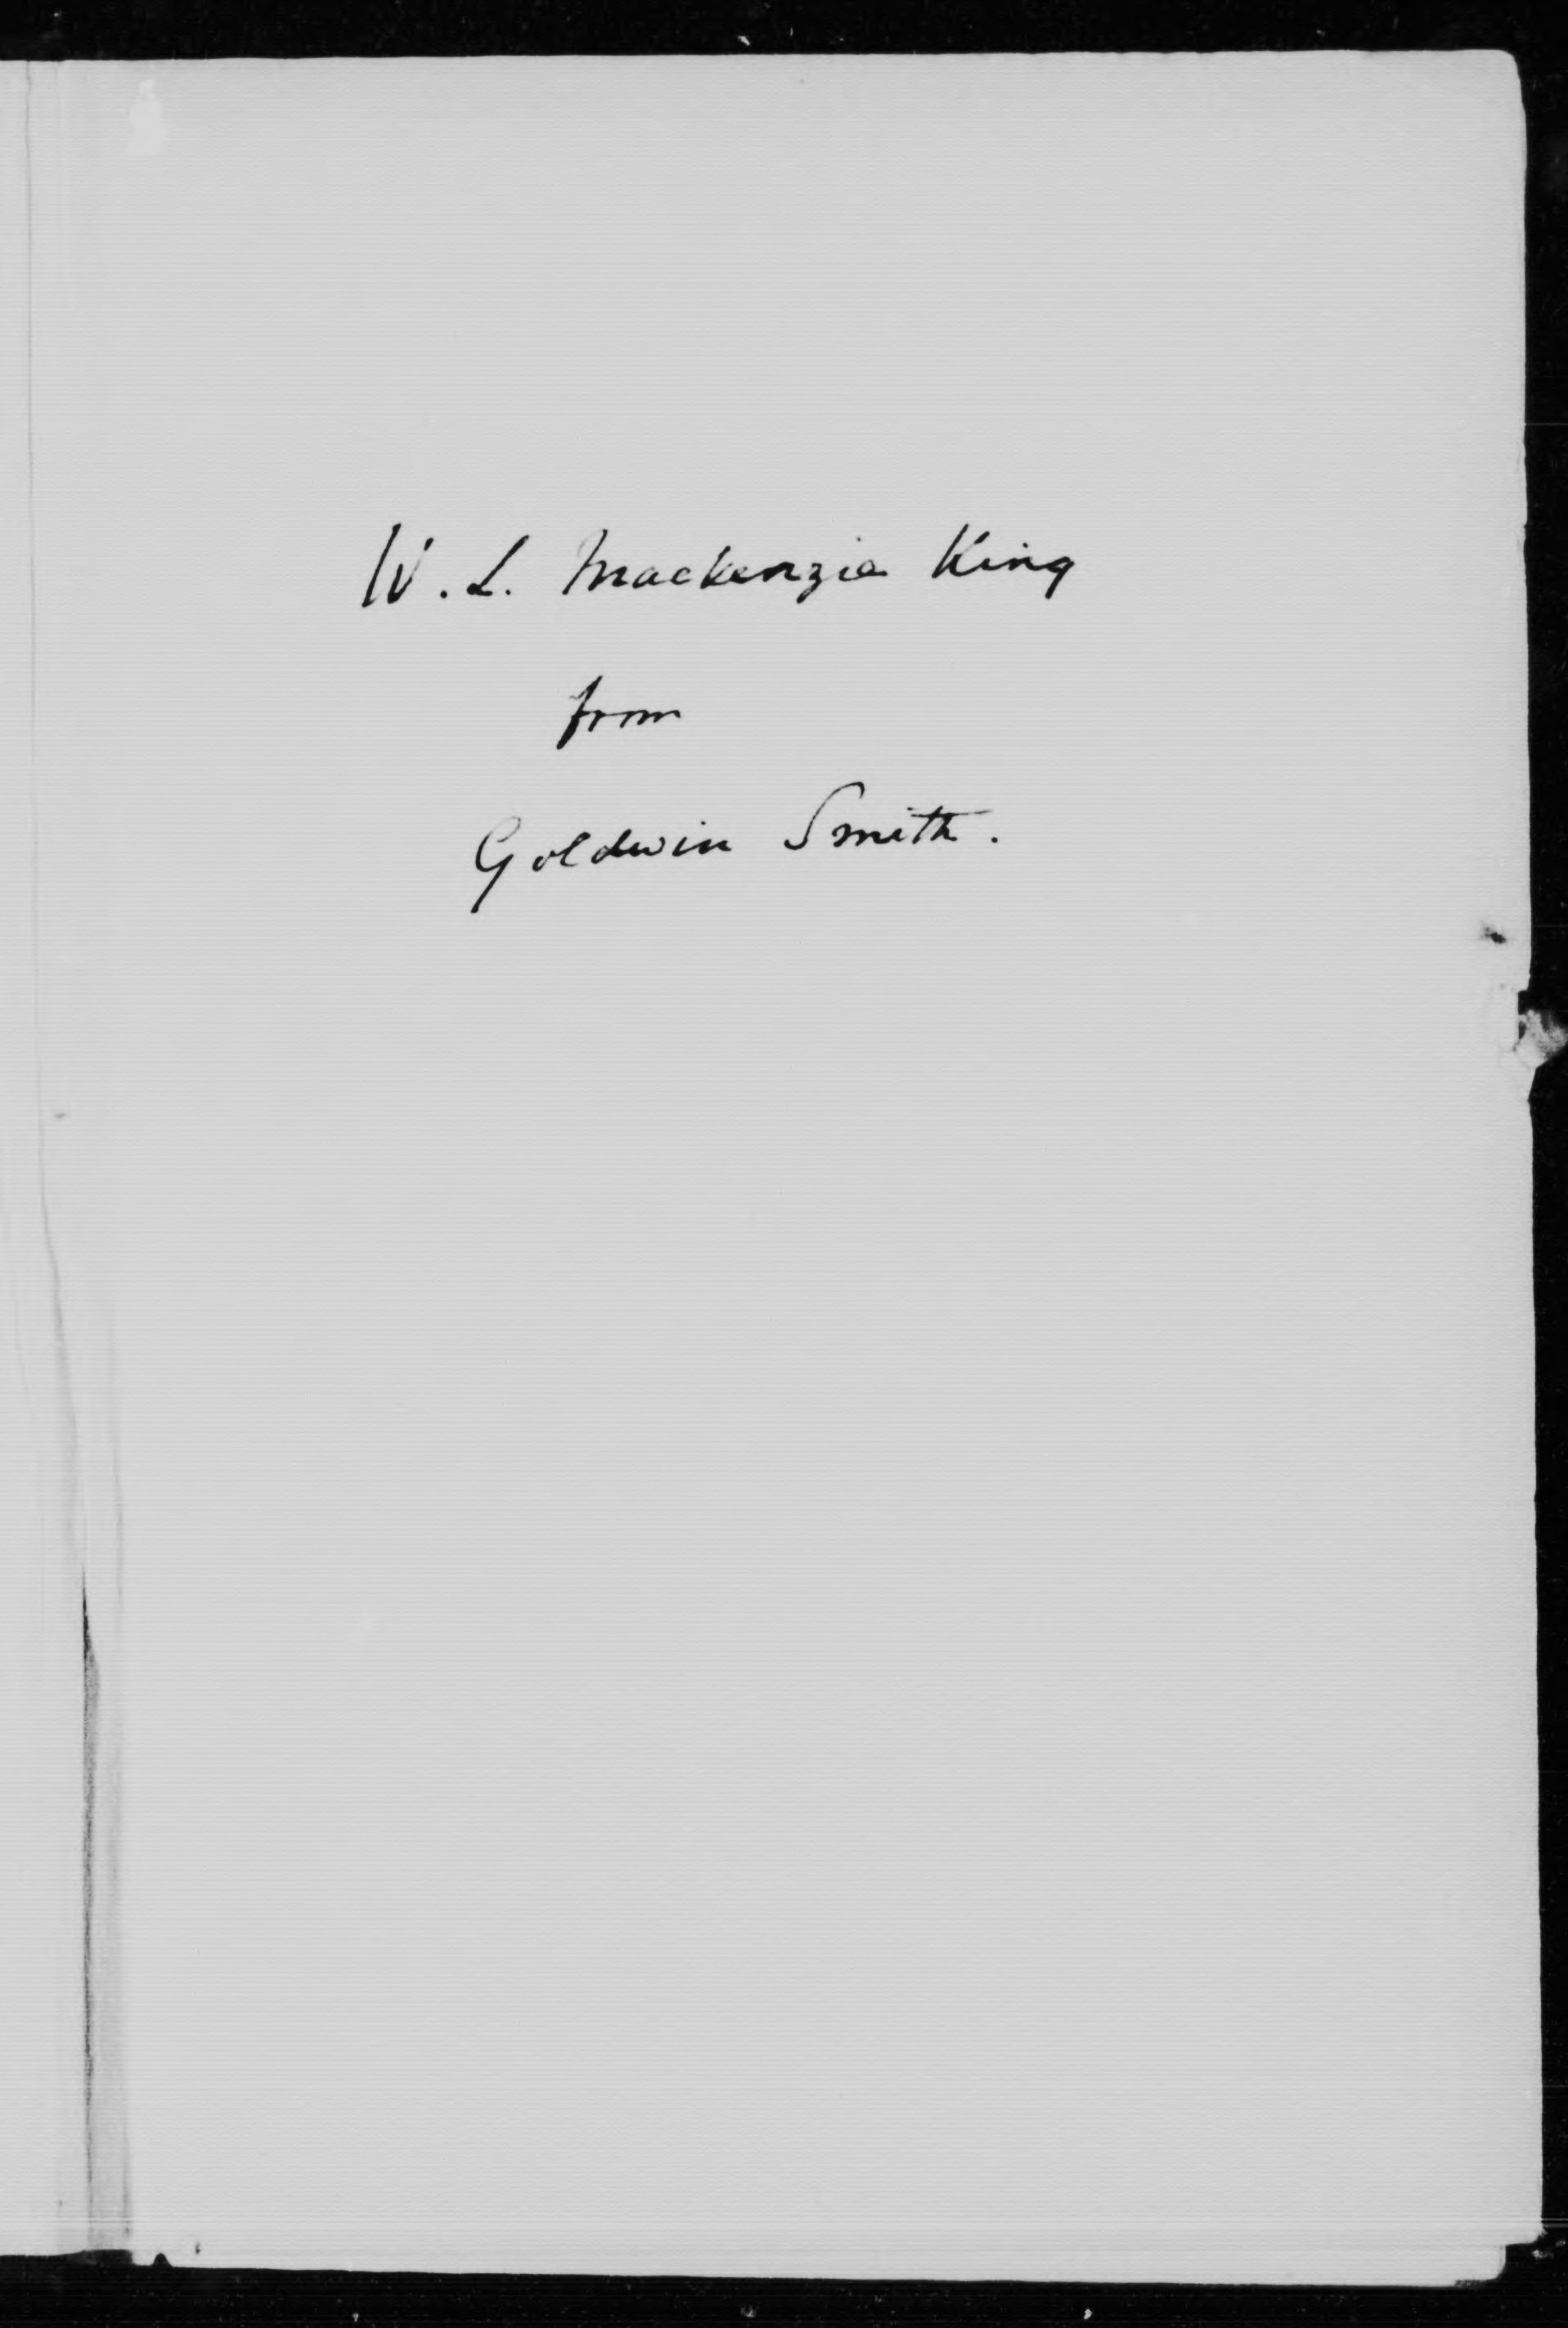 W. L. Mackenzie King
from
Goldwin Smith.